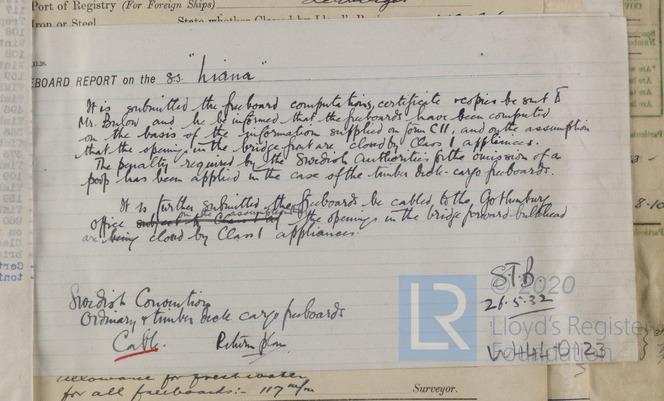 Port of Registry (For Foreign Ships)
Iron or Steel
State whether
EBOARD REPORT on the s.s. "Liana"
It is submitted the freeboard computations, certificate & copies be sent to
Mr. Bulow and he be informed that the freeboards have been computed
on the basis of the information supplied on form C11, and on the assumption
that the openings in the bridge front are closed by Class 1 appliances.
The penalty required by the Swedish Authorities for the omission of a
poop has been applied in the case of the timber deck cargo freeboards.
It is further submitted the freeboards be cabled to the Gothenburg
office on the assumption of the openings in the bridge forward bulkhead
are being closed by Class 1 appliances.
S.T.B.
26.5.32
Swedish Convention
Ordinary & timber deck cargo freeboards
Cable. Return plan
W444-0123
LR
© 2020
Lloyd's Register
Foundation
allowance for freshwater
for all freeboards:- 117 m/m
Surveyor.